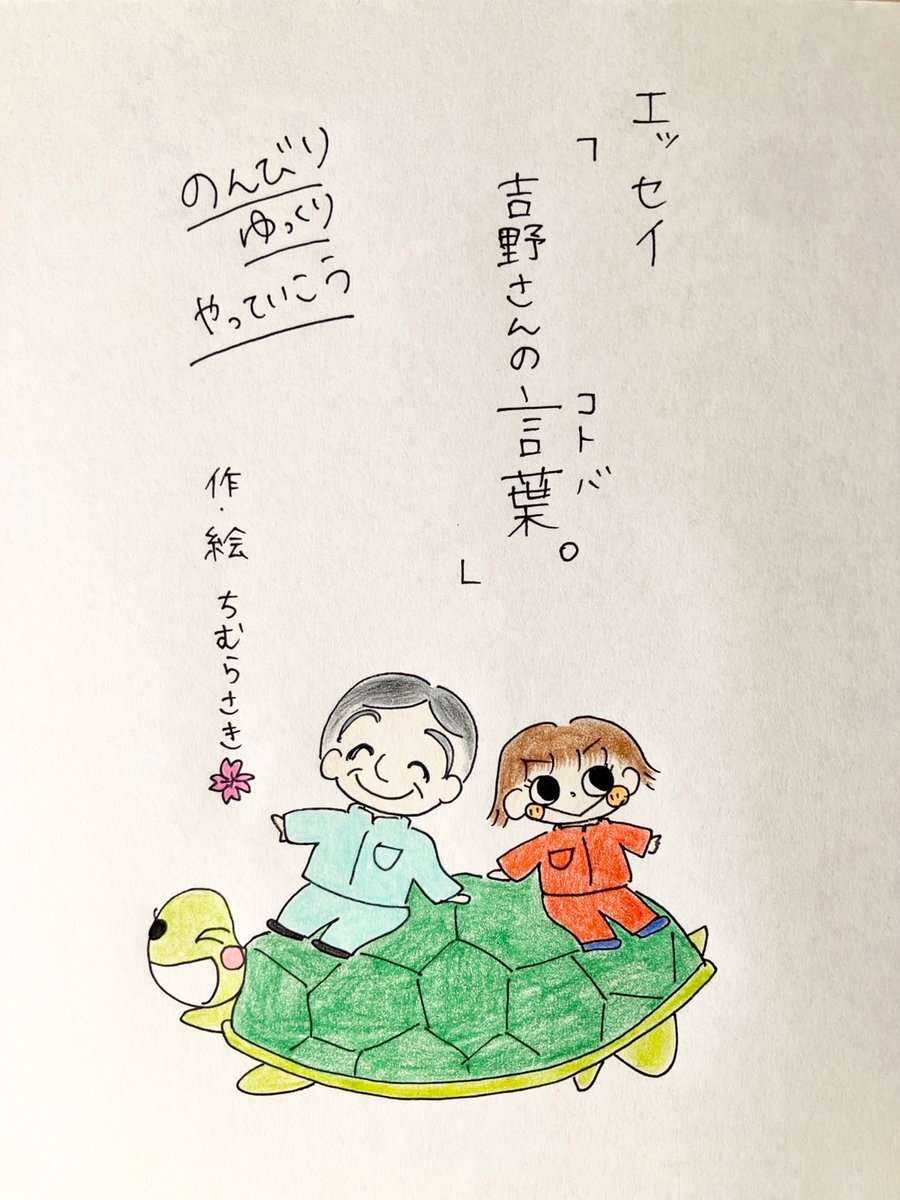 エッセイ
「吉野さんの言葉。」
コトバ
のんびり
ゆっくり
やっていこう
作・絵 ちむらさき